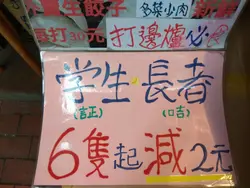 生餃子
多菜少肉
每打30元
打邊爐必
学生、長者
(言正) (口吉)
6隻起減2元